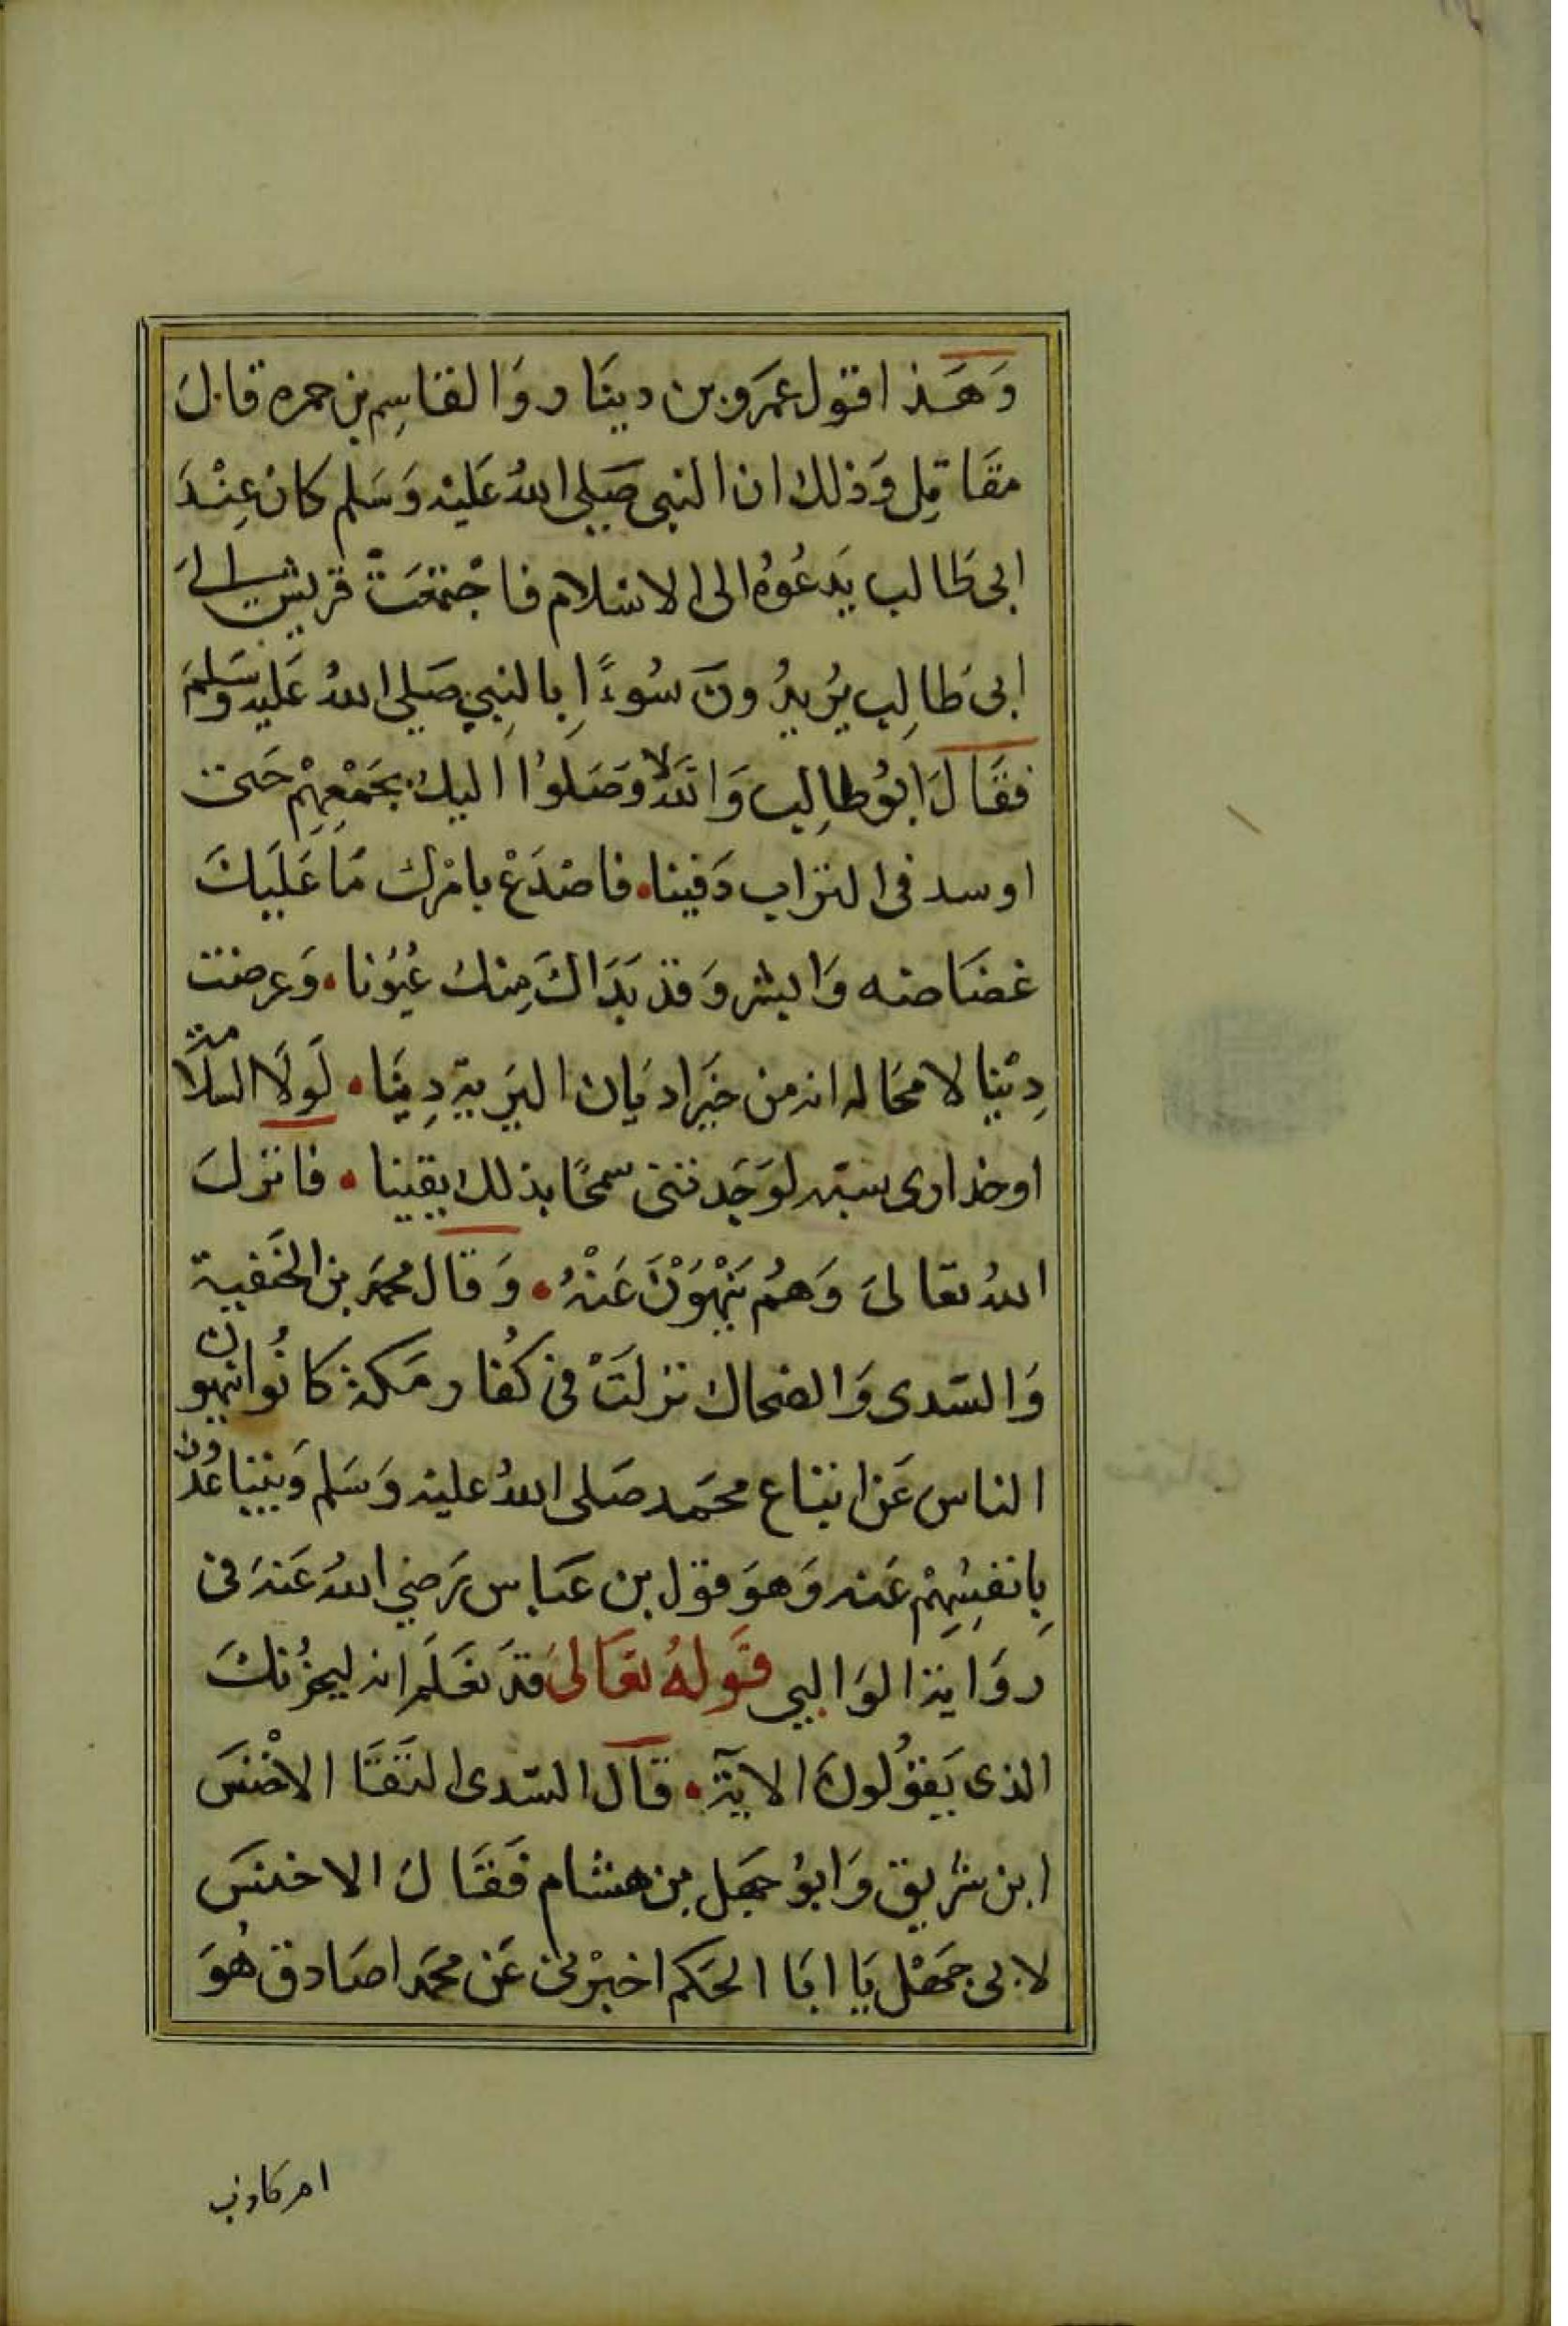 وَهَذا قول عَمرو بن دينَار وَالقاسِم بن حمره قالَ
مقَاتِل وَذلك ان النبى صَلى اللهُ عَليْه وَسَلم كان عِنْدَ
ابى طَالب يَدعُوهُ الى الاسْلام فاجْتمعَتْ قريش الىَ
ابى طالِب يُريدُونَ سُوءًا بالنِبي صَلي اللهُ عَليه وسَلمَ
فقَالَ ابوُ طالِب وَاللهِ لا وَصَلوُا اليكَ بجَمْعِهِمْ حَتى
اوسد فى التراب دَفينا فاصْدَعْ بامْرك مَا عَلَيكَ
غضَاضه وَابشر وَقدْ بَدَاكَ مِنكَ عُيوُنا وَعرضت
دِيْنا لا محَاله انه من خيَر اديَان البَريةِ دِينَا لَولَا الملَامَة
او خذارى سبَّه لوَجَدتنى سمحًا بذلك يقينا فانزلَ
اللهُ تعالىَ وَهمُ يَنْهَوْنَ عَنْهُ وَقال محمَد بن الحَنفية
وَالسّدى وَالضحاك نزلَتْ فى كُفار مَكة كانُوا ينهون
الناس عَن اتباع محمَد صَلى اللهُ عليْه وَسَلم وَيتباعُدون
بِانفسِهِمْ عَنه وَهوَ قول بن عَباس رَضي اللهُ عَنهَ فى
روَاية الوَالِبي قَولهُ تعَالىَ قدَ نعَلَم انه ليحزُنكَ
الذى يَقوُلونَ الآيَة قالَ السّدى التَقَا الاخْنَسَ
ابن شريق وَابوُ جهَل بن هشام فَقَالَ الاخنسَ
لابى جَهْل يَا ابَا الحَكم اخبرْنى عَن محمَد اصَادق هُوَ
ام كاذب